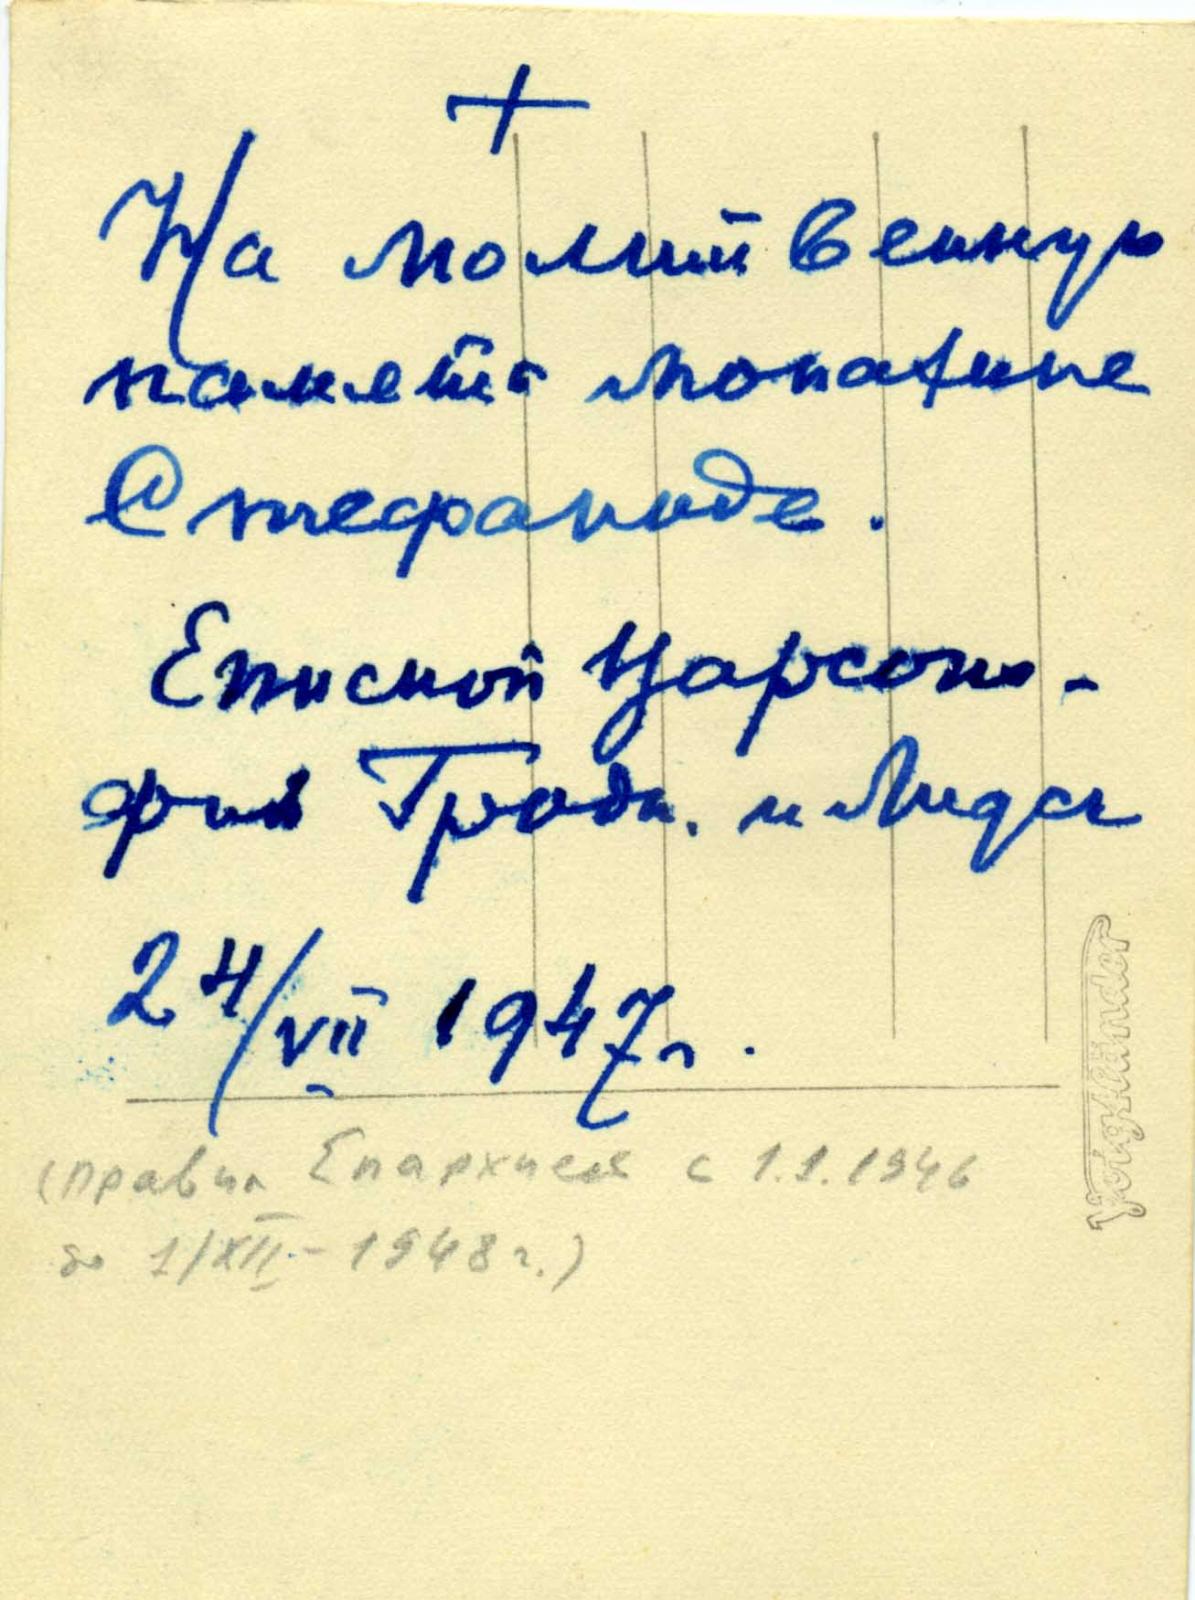 +
На молитвенную
память монахине
Стефаниде.
Епископ Варсоно-
фий Гродн. и Лидск
24/VII 1947г.
(правил Епархией с 1.1.1946
до 1/XII - 1948 г.)
Voigtländer